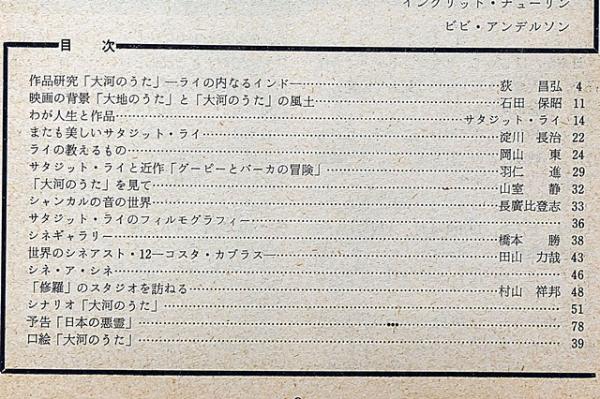 イングリット・チューリン
ビビ・アンデルソン
目次
作品研究「大河のうた」―ライの内なるインド―……荻昌弘 4
映画の背景「大地のうた」と「大河のうた」の風土……石田保昭 11
わが人生と作品……サタジット・ライ 14
またも美しいサタジット・ライ……淀川長治 22
ライの教えるもの……岡山東 24
サタジット・ライと近作「グーピーとバーカの冒険」……羽仁進 29
「大河のうた」を見て……山室静 32
シャンカルの音の世界……長廣比登志 33
サタジット・ライのフィルモグラフィー……36
シネギャラリー……橋本勝 38
世界のシネアスト・12―コスタ・カブラス―……田山力哉 43
シネ・ア・シネ……46
「修羅」のスタジオを訪ねる……村山祥邦 48
シナリオ「大河のうた」……51
予告「日本の悪霊」……78
口絵「大河のうた」……39